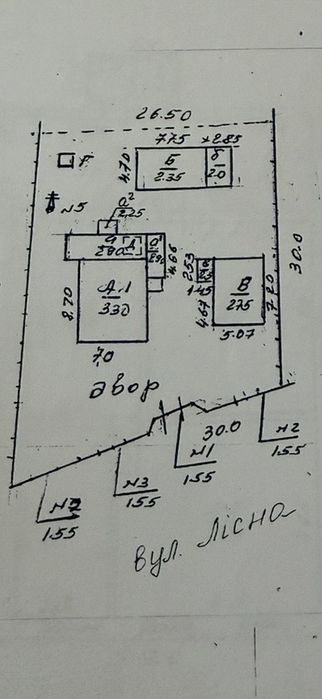 26.50
7.75 x 2.85
4.70
Б
2.35
б
2.0
Г
№5
а²
2.25
а
2.80
4.66
2.53
1.45
А.1
3.30
8.70
7.0
В
2.75
7.20
4.67
5.07
30.0
двор
30.0
№2
1.55
№1
1.55
№3
1.55
1.55
вул. Лісна